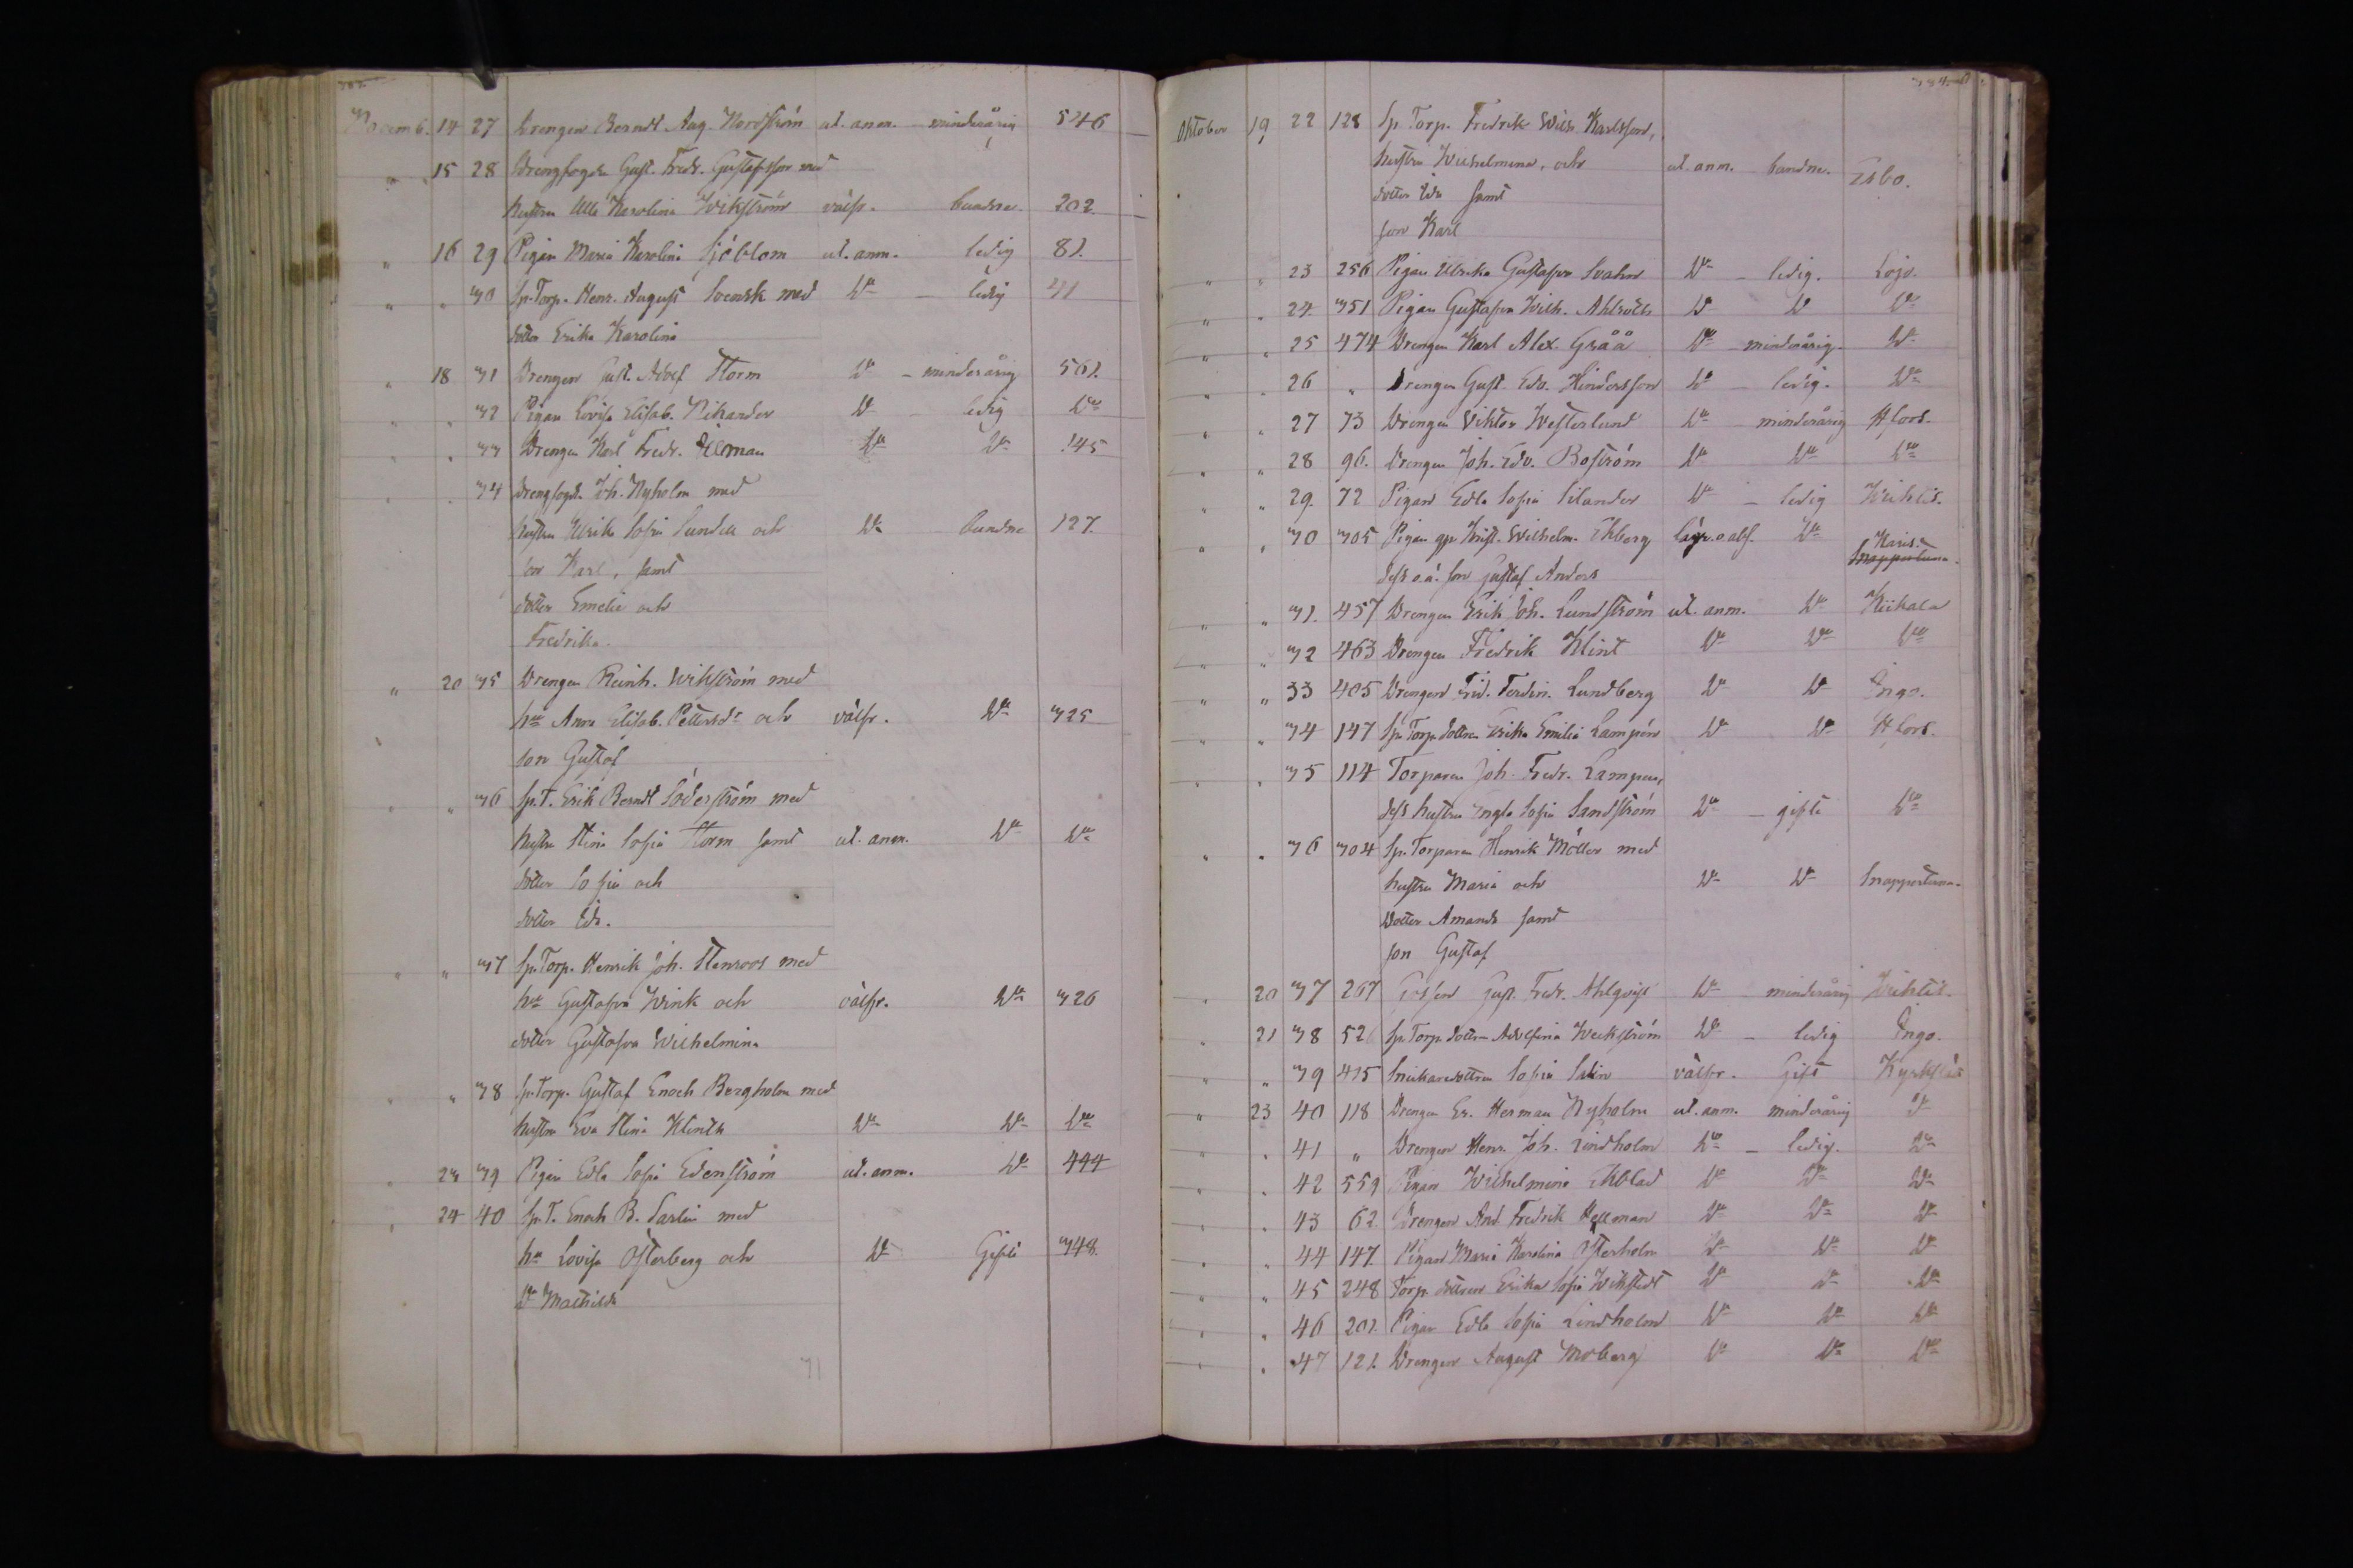 Novemb. 14 27 Drengen Berndt Aug. Nordström ut. anm. – minderårig 546
" 15 28 Drengfogde Gust. Fredr. Gustafsson med
hustru Ulla Karolina Wikström välfr. bundne. 202.
" 16 29 Pigan Maria Karolina Sjöblom ut. anm. ledig 81.
" " 30 Sp. Torp. Henr. August Svensk med Do – ledig 41
dotter Erika Karolina
" 18 31 Drengen Gust. Adolf Storm Do – minderårig 561.
" " 32 Pigan Lovisa Elisab. Nikander Do – ledig Do
" " 33 Drengen Karl Fredr. Do Do 145
" " 34 Drengfogd. Joh. Nyholm med
hustru Ulrika Sofia Sundell och Do bundne 127.
son Karl, samt
dotter Emelie och
Fredrika.
" 20 35 Drengen Reinh. Wikström med
hu Anna Elisab. Pettersdr och välfr. Do 325
son Gustaf
" " 36 Sp. T. Erik Berndt Söderström med
hustru Stina Sofia Storm samt ut. anm. Do Do
dotter Sofia och
dotter Ida.
" " 37 Sp. Torp. Henrik Joh. Stenroos med
hu Gustafva Wink och välfr. Do 326
dotter Gustafva Wilhelmina
" " 38 Sp. Torp. Gustaf Enoch Bergholm med
hustru Eva Stina Klinta Do Do Do
" 23 39 Pigan Edla Sofia Edenström ut. anm. Do 494
" 24 40 Sp. T. Enoch B. Sarlin med
hu Lovisa Österberg och Do Gifte 348.
Dr Mathilda
Oktober 19 22 128 Sp. Torp. Fredrik Wilh. Karlsson,
hustru Wilhelmina, och ut. anm. bundne. Esbo.
dotter Ida samt
son Karl
" " 23 256 Pigan Ulrika Gustafva Svahn Do – ledig. Lojo.
" " 24. 351 Pigan Gustafva Wilh. Ahlroth Do Do Do
" " 25 474 Drengen Karl Alex. Gråå Do – minderårig. Do
" " 26 " Drengen Gust. Edv. Hindersson Do – ledig. Do
" " 27 73 Drengen Viktor Westerlund Do minderårig Hfors.
" " 28 96. Drengen Joh. Edv. Boström Do Do Do
" " 29. 72 Pigan Edla Sofia Silander Do – ledig Wichtis.
" " 30 305 Pigan gp Krist. Wilhelm. Ekberg lägr. o abs. Do Karis.
dess o.ä. son Gustaf Anders Snappertuna.
" " 31. 457 Drengen Erik Joh. Lundström ut. anm. Do Kiikala
" " 32 463 Drengen Fredrik Klint Do Do Do
" " 33 405 Drengen Frd. Ferdin. Lundberg Do Do Ingo.
" " 34 147 Sp. Torp. dottren Erika Emilia Lampén Do Do Hfors.
" " 35 114 Torparen Joh. Fredr. Lampen,
dess hustru Engla Sofia Sandström Do – gifte Do
" " 36 304 Sp. Torparen Henrik Möller med
hustru Maria och Do Do Snappertuna.
Dotter Amanda samt
son Gustaf
" 20 37 267 Gust. Fredr. Ahlqvist Do – minderårig Wichtis.
" 21 38 526 Sp. Torp. dottren Adolfina Weckström Do – ledig Ingo.
" " 39 415 Snickaredottren Sofia Salin välfr. Gift Kyrkslätt
" 23 40 118 Drengen Er. Herman Nyholm ut. anm. minderårig Do
" " 41 " Drengen Henr. Joh. Lindholm Do – ledig. Do
" " 42 559 Pigan Wilhelmina Ekblad Do Do Do
" " 43 62. Drengen And. Fredrik Hellman Do Do Do
" " 44 147. Pigan Maria Karolina Österholm Do Do Do
" " 45 248 Torp. dottren Erika Sofia Wikstedt Do Do Do
" " 46 201. Pigan Edla Sofia Lindholm Do Do Do
" " 47 121. Drengen August Moberg Do Do Do